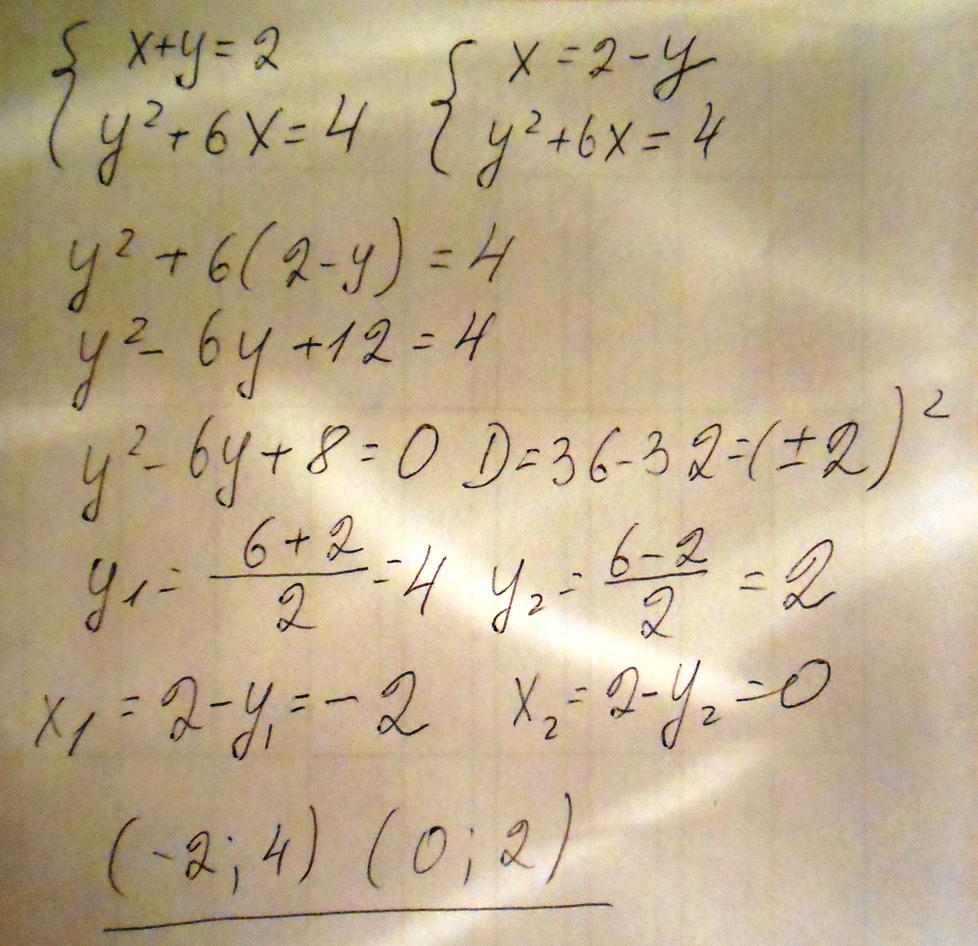 { x+y=2 { x=2-y
y²+6x=4 y²+6x=4
y²+6(2-y)=4
y²-6y+12=4
y²-6y+8=0 D=36-32=(±2)²
y₁=(6+2)/2=4 y₂=(6-2)/2=2
x₁=2-y₁=-2 x₂=2-y₂=0
(-2;4) (0;2)